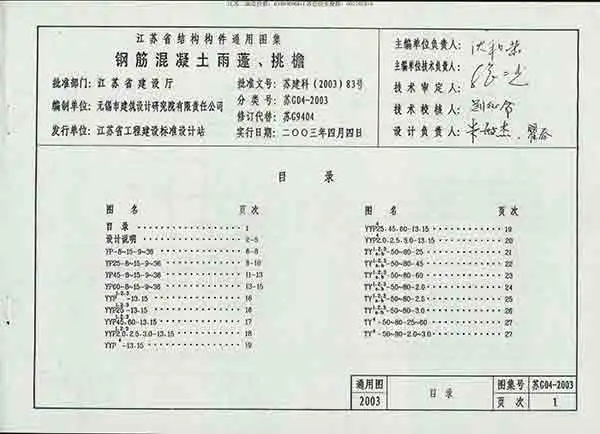 江苏省结构构件通用图集
钢筋混凝土雨蓬、挑檐
批准部门：江苏省建设厅
批准文号：苏建科(2003)83号
编制单位：无锡市建筑设计研究院有限责任公司
分类号：苏G04-2003
修订代替：苏G9404
发行单位：江苏省工程建设标准设计站
实行日期：二〇〇三年四月四日
主编单位负责人：
主编单位技术负责人：
技术审定人：
技术校核人：
设计负责人：
目录
图名 页次
目录 1
设计说明 2-5
YP-8~15-9~36 6-8
YP25-8~15-9~36 8-10
YP45-8~15-9~36 11-13
YP60-8~15-9~36 13-15
YYP1.2.3-13.15 16
YYP25 1.2.3-13.15 16
YYP45.60 1.2.3-13.15 17
YYP2.0.2.5.3.0 1.2.3-13.15 18
YYP4-13.15 19
图名 页次
YYP4 25.45.60-13.15 19
YYP2.0.2.5.3.0-13.15 20
-50~80-25 21
-50~80-45 22
-50~80-60 23
-50~80-2.0 24
-50~80-2.5 25
-50~80-3.0 26
TY4-50~80-25~60 27
TY4-50~80-2.0~3.0 27
通用图
2003
目录
图集号 苏G04-2003
页次 1